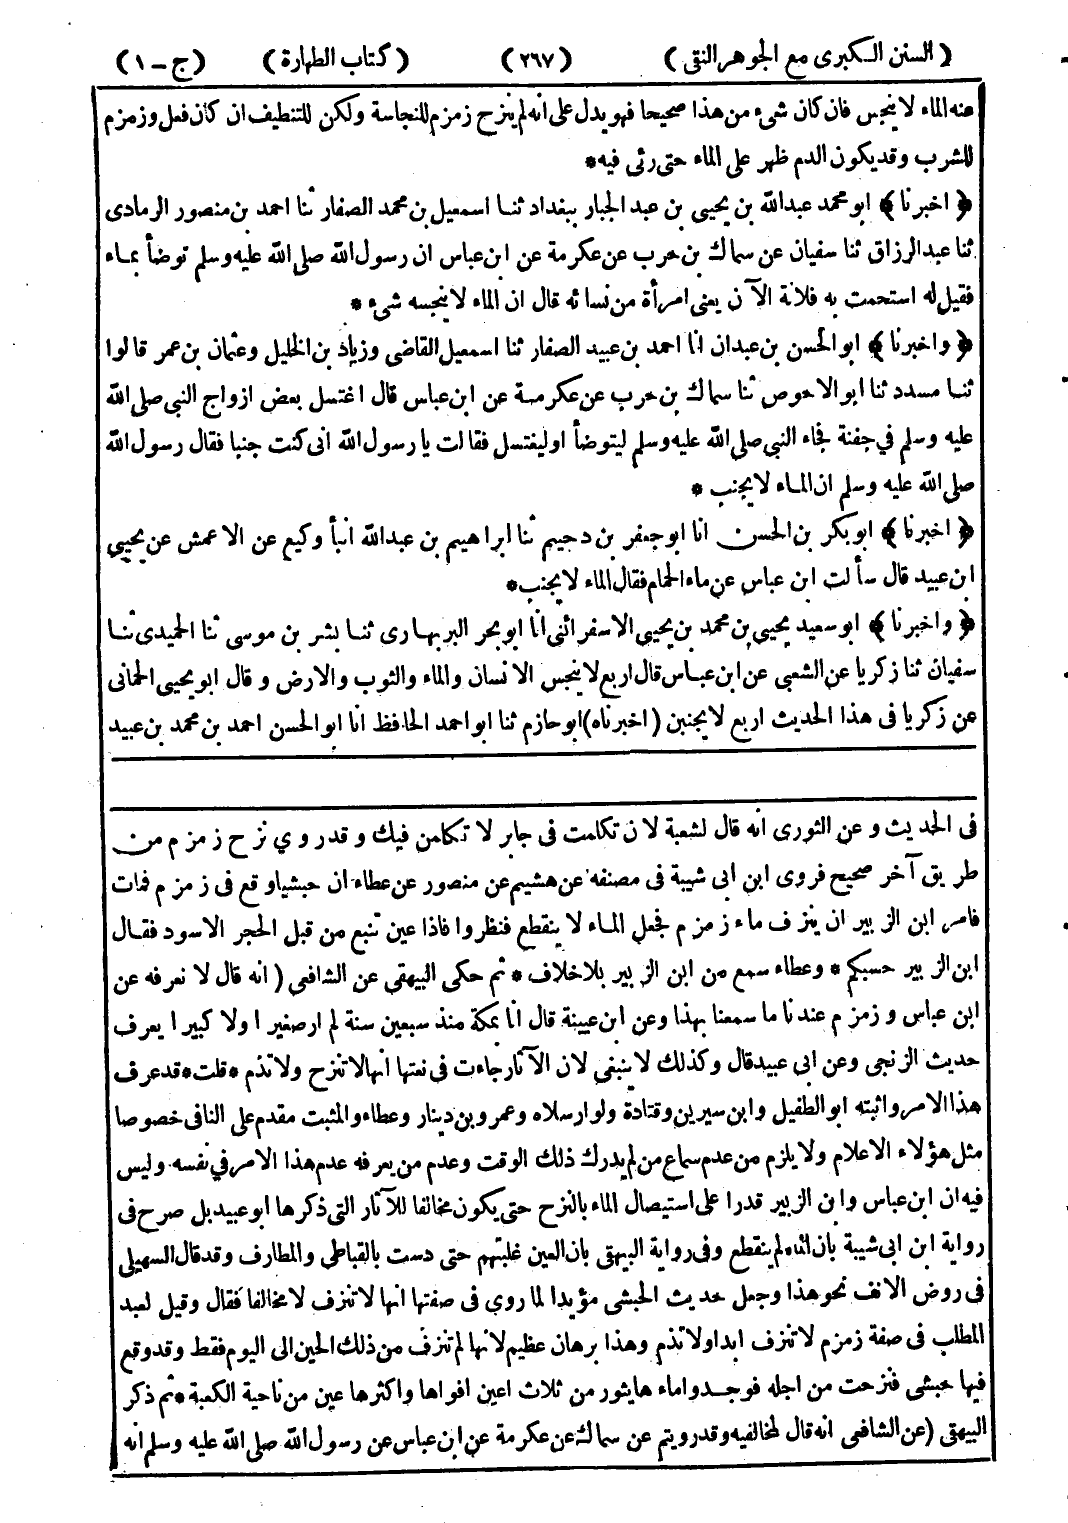 ( السنن الكبرى مع الجوهر النقى ) ( ٢٦٧ ) ( كتاب الطهارة ) ( ج – ١ )
عنه الماء لا ينجس فان كان شىء من هذا صحيحا فهو يدل على انه لم ينزح زمزم للنجاسة ولكن للتنظيف ان كان فعل وزمزم
للشرب وقد يكون الدم ظهر على الماء حتى رئى فيه *
﴿ اخبرنا ﴾ ابو محمد عبدالله بن يحيى بن عبد الجبار ببغداد ثنا اسمعيل بن محمد الصفار ثنا احمد بن منصور الرمادى
ثنا عبدالرزاق ثنا سفيان عن سماك بن حرب عن عكرمة عن ابن عباس ان رسول الله صلى الله عليه وسلم توضأ بماء
فقيل له استحمت به فلانة الآن يعنى امرأة من نسائه قال ان الماء لا ينجسه شىء *
﴿ واخبرنا ﴾ ابو الحسن بن عبدان انا احمد بن عبيد الصفار ثنا اسمعيل القاضى وزياد بن الخليل وعثمان بن عمر قالوا
ثنا مسدد ثنا ابو الاحوص ثنا سماك بن حرب عن عكرمة عن ابن عباس قال اغتسل بعض ازواج النبى صلى الله
عليه وسلم في جفنة فجاء النبى صلى الله عليه وسلم ليتوضأ او ليغتسل فقالت يا رسول الله انى كنت جنبا فقال رسول الله
صلى الله عليه وسلم ان الماء لا يجنب *
﴿ اخبرنا ﴾ ابو بكر بن الحسن انا ابو جعفر بن دحيم ثنا ابراهيم بن عبدالله انبأ وكيع عن الاعمش عن يحيى
ابن عبيد قال سألت ابن عباس عن ماء الحمام فقال الماء لا يجنب *
﴿ واخبرنا ﴾ ابو سعيد يحيى بن محمد بن يحيى الاسفرائنى انا ابو بحر البربهارى ثنا بشر بن موسى ثنا الحميدى ثنا
سفيان ثنا زكريا عن الشعبى عن ابن عباس قال اربع لا ينجس الانسان والماء والثوب والارض وقال ابو يحيى الحمانى
عن زكريا فى هذا الحديث اربع لا يجنبن ( اخبرناه ) ابو حازم ثنا ابو احمد الحافظ انا ابو الحسن احمد بن محمد بن عبيد
فى الحديث وعن الثورى انه قال لشعبة لان تكلمت فى جابر لا تكلمن فيك وقد روي نزح زمزم من
طريق آخر صحيح فروى ابن ابى شيبة فى مصنفه عن هشيم عن منصور عن عطاء ان حبشيا وقع فى زمزم فمات
فامر ابن الزبير ان ينزف ماء زمزم فجعل الماء لا ينقطع فنظروا فاذا عين تنبع من قبل الحجر الاسود فقال
ابن الزبير حسبكم * وعطاء سمع من ابن الزبير بلا خلاف * ثم حكى البيهقى عن الشافعى ( انه قال لا نعرفه عن
ابن عباس وزمزم عندنا ما سمعنا بهذا وعن ابن عيينة قال انا بمكة منذ سبعين سنة لم ار صغيرا ولا كبيرا يعرف
حديث الزنجى وعن ابى عبيد قال وكذلك لا ينبغى لان الآثار جاءت فى نعتها انها لا تنزح ولا تذم * قلت * قد عرف
هذا الامر واثبته ابو الطفيل وابن سيرين وقتادة ولو ارسلاه وعمرو بن دينار وعطاء والمثبت مقدم على النافى خصوصا
مثل هؤلاء الاعلام ولا يلزم من عدم سماع من لم يدرك ذلك الوقت وعدم من يعرفه عدم هذا الامر في نفسه وليس
فيه ان ابن عباس وابن الزبير قدرا على استيصال الماء بالنزح حتى يكون مخالفا للآثار التى ذكرها ابو عبيد بل صرح فى
رواية ابن ابى شيبة بان الماء لم ينقطع وفى رواية البيهقى بان العين غلبتهم حتى دست بالقباطى والمطارف وقد قال السهيلى
فى روض الانف نحو هذا وجعل حديث الحبشى مؤيدا لما روى فى صفتها انها لا تنزف لا مخالفا فقال وقيل لعبد
المطلب فى صفة زمزم لا تنزف ابدا ولا تذم وهذا برهان عظيم لانها لم تنزف من ذلك الحين الى اليوم فقط وقد وقع
فيها حبشى فنزحت من اجله فوجدوا ماءها يثور من ثلاث اعين افواها واكثرها عين من ناحية الكعبة * ثم ذكر
البيهقى ( عن الشافعى انه قال لمخالفيه وقد رويتم عن سماك عن عكرمة عن ابن عباس عن رسول الله صلى الله عليه وسلم انه